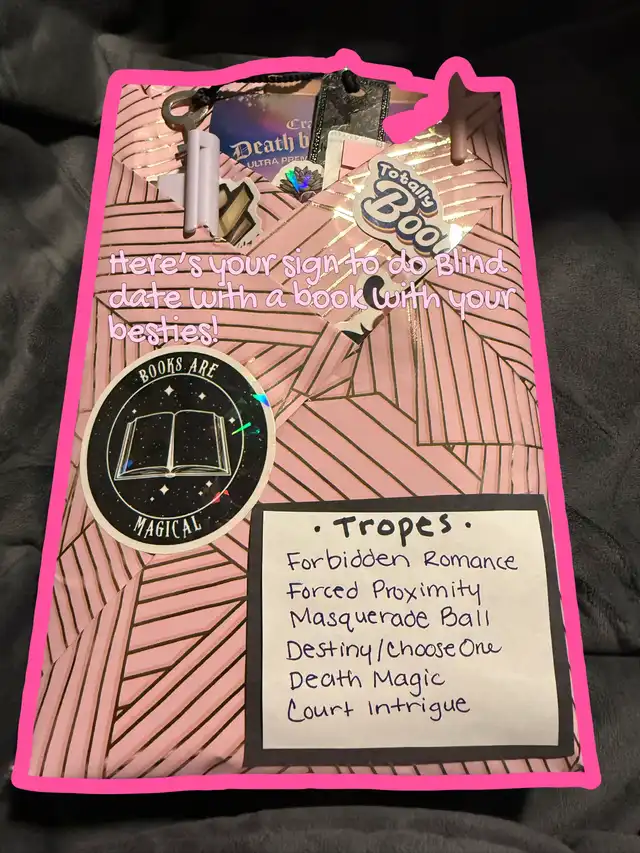 Death b
ULTRA PREM
Totally
Boo
Here's your sign to do Blind
date with a book with your
besties!
BOOKS ARE
MAGICAL
· Tropes ·
Forbidden Romance
Forced Proximity
Masquerade Ball
Destiny/Choose One
Death Magic
Court Intrigue